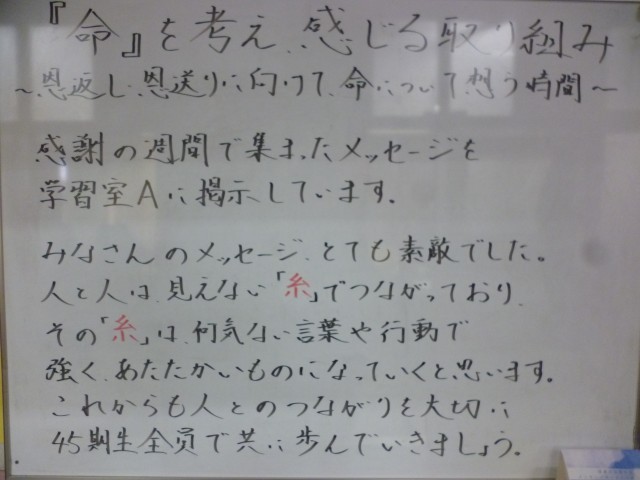 『命』を考え、感じる取り組み
～恩返し・恩送りに向けて、命について想う時間～
感謝の週間で集まったメッセージを
学習室Aに掲示しています。
みなさんのメッセージ、とても素敵でした。
人と人は、見えない「糸」でつながっており、
その「糸」は、何気ない言葉や行動で
強く、あたたかいものになっていくと思います。
これからも人とのつながりを大切に
45期生全員で共に歩んでいきましょう。